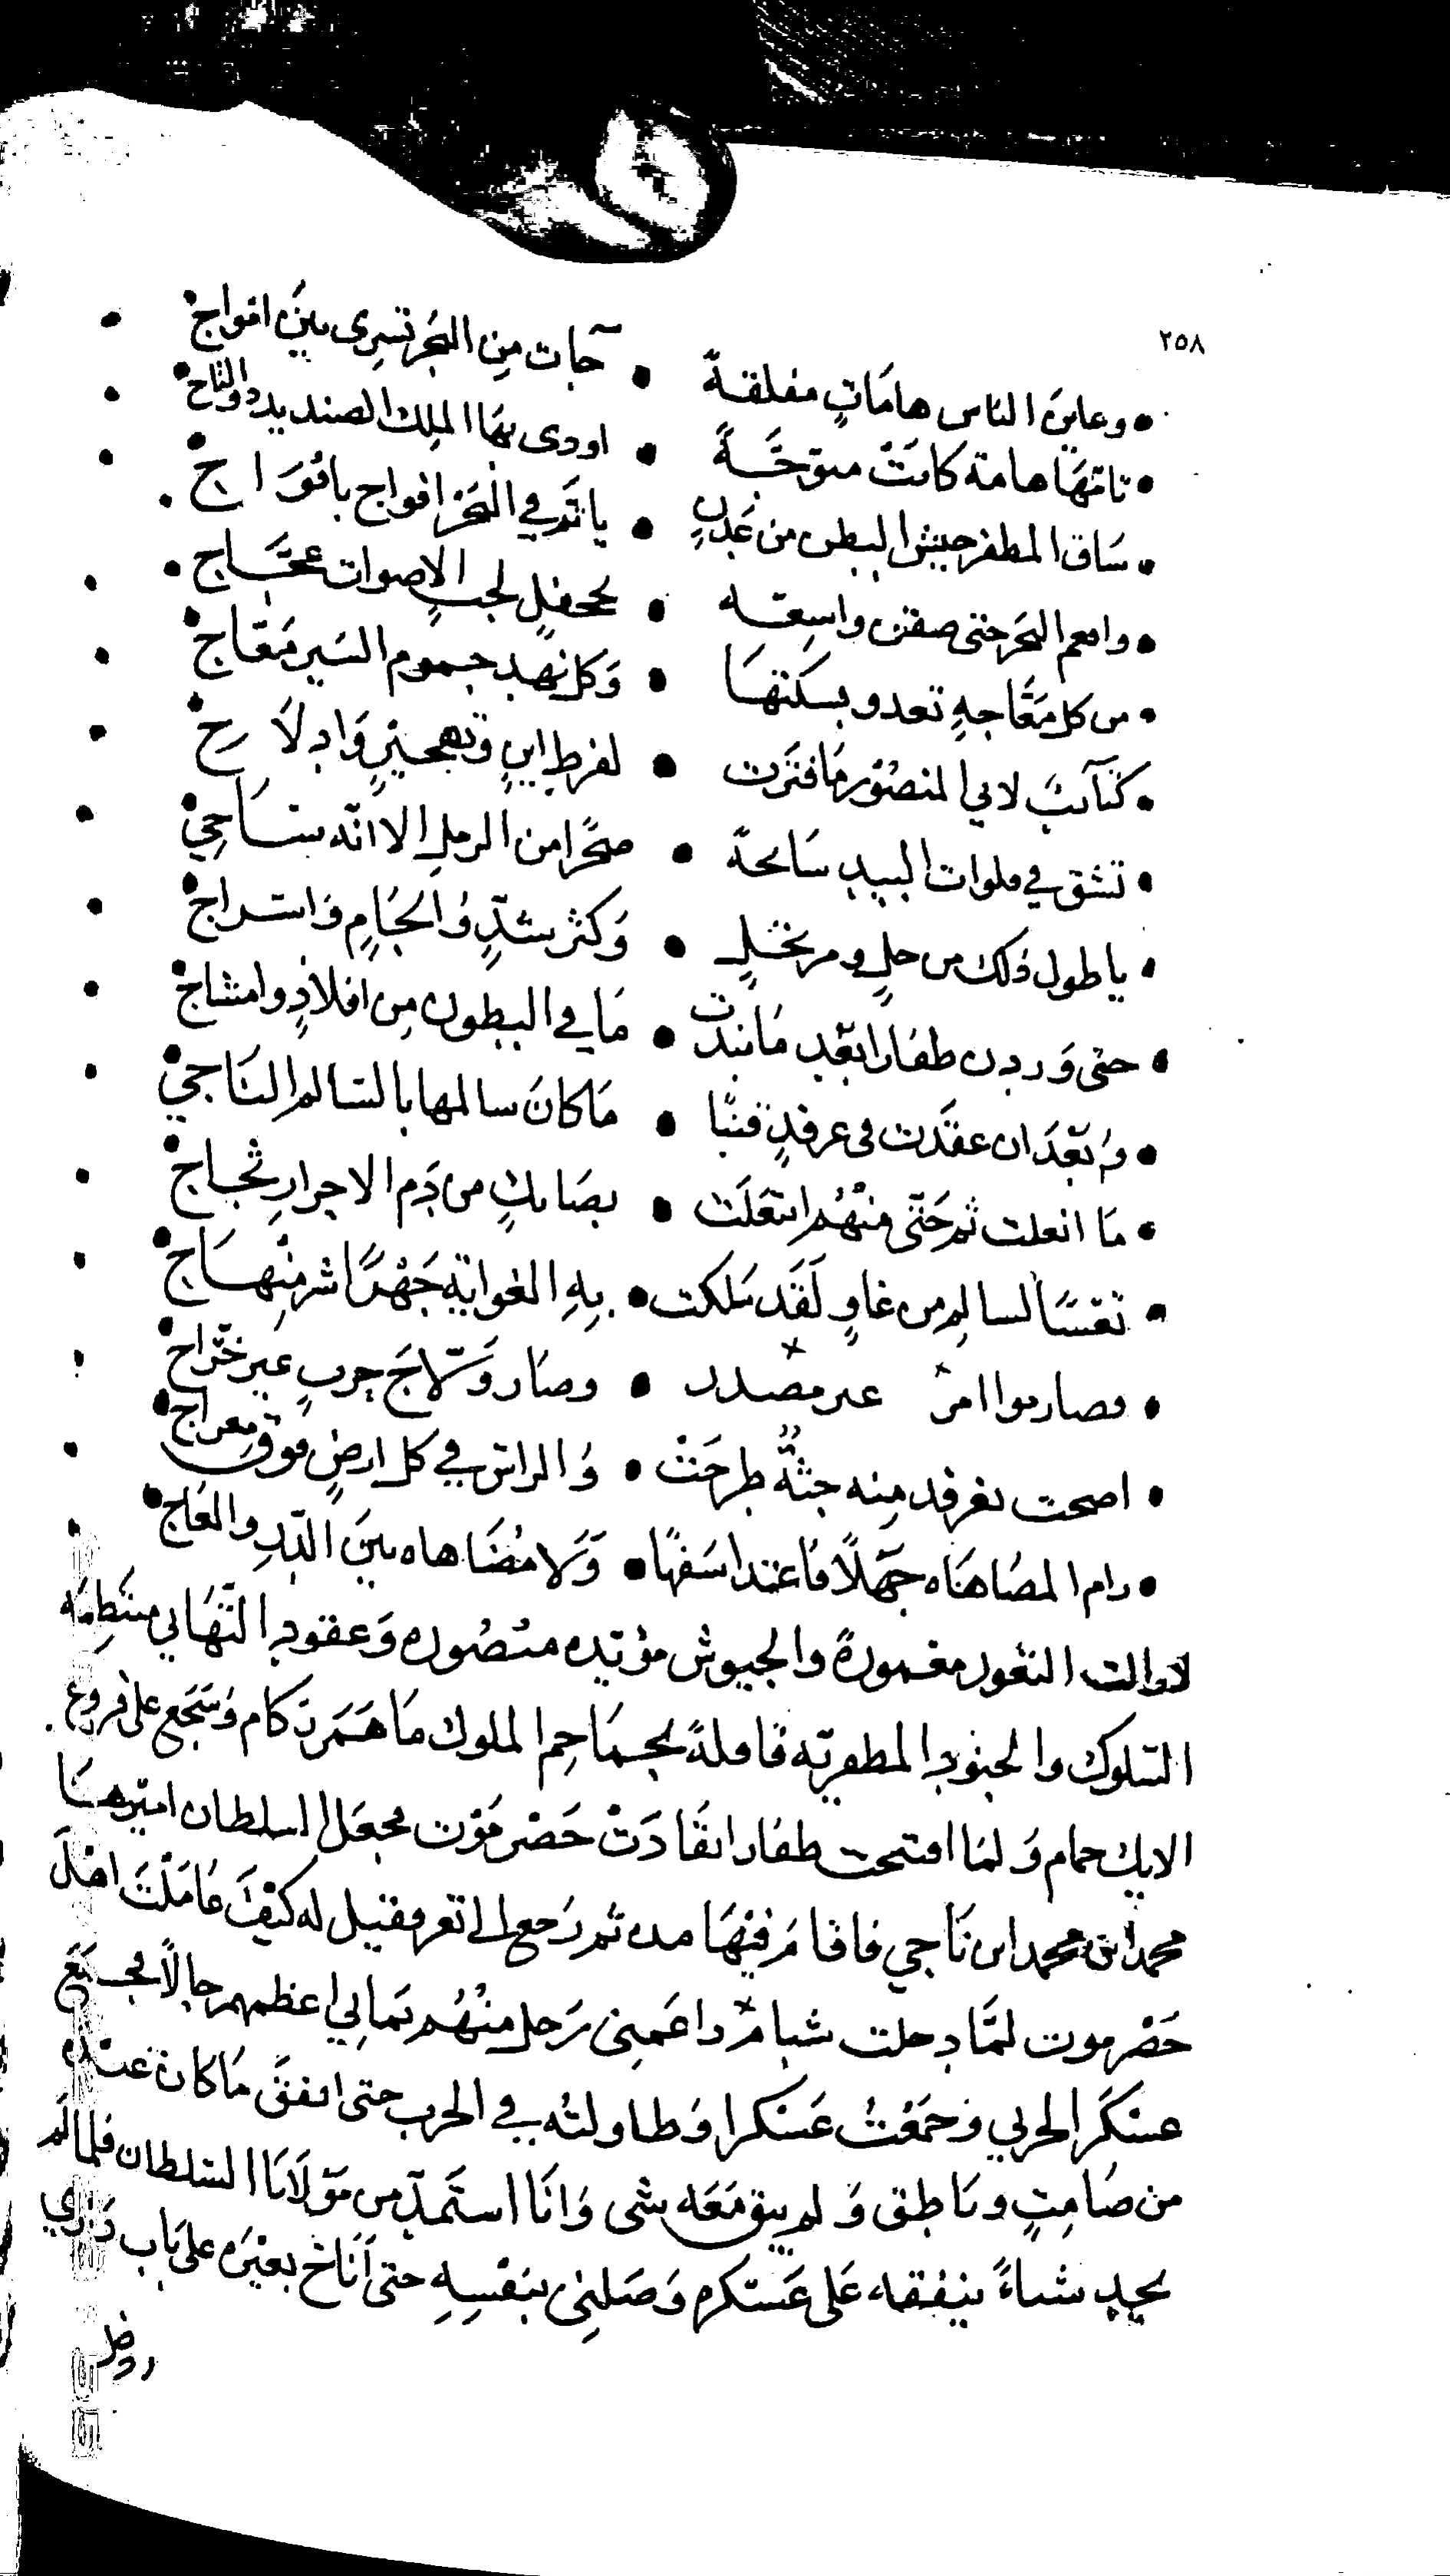 ٢٥٨
• وعاين الناس هامَاتٍ مفلقةً • جآت مِن البحَر تسرِى بينَ افواج •
• تامّهَا هامة كانتْ متوجَّةً • اودى بهَا الملك الصنديد والتاج •
• سَاق المظفر جيش البطش من عَدنٍ • ياتمّ في البَحر افواج بافوَاج •
• وافعم البحَر حتى ضقن واسِعَه • بححفلٍ لجب الاصوات عجَّاج •
• من كل مَعَّاجهٍ تعدو بسكنتهَا • وَكل نهد جموم السَير مَعّاج •
• كتآئب لابي المنصُوْر مَافترَت • لفرط اينٍ وتهجيرٍ وَادلَاج •
• تشق في فلوات البيد سَابحة • صحرًا من الرمل الا انّه سَاجِي •
• ياطول ذلك من حلٍ ومرتحَلٍ • وَكثر شدٍّ وَالجَامٍ وَاسراج •
• حتى وَردن ظفارا بعْد مَا نبذت • مَا في البطون مِن افلاذٍ وامشاج •
• وَبَعْدَ ان عقَدت في عرقدٍ قتبًا • مَا كانَ سالمها بالسالم النَاجي •
• مَا انعلت ثم حَتّى مِنْهُم انتعَلت • بصَائك من دَم الاحرار ثجاج •
• تعَسًا لسالم من غاوٍ لَقَد سَلكت • بهِ الغوايةِ جَهْرًا شر مِنْهَاج •
• وصار وَلّاجَ حربٍ غير خَرّاج •
• اضحت بعرقد منه جثةٌ طرحَتْ • وَالراس في كل ارضٍ فوق معراج •
• رام المضَاهَاه جَهلًا فاعتدا سَفهًا • وَلا مُضَاهاه بينَ الدّرِ والعَاج •
لازالت الثغور معمورةً والجيوش مؤيده منصُوره وَعقود التّهَاني منتظِمَه
السلوك والجنود المظفريّه قافلةً بجمَاجم الملوك مَا هَمَر رُكام وَسَجَع على فروع
الايك حمام وَلمَا افتتحت ظفار انقَادَتْ حَضْرمَوْت فجعَل السلطان اميرهَا
محمد ابن محمد ابن نَاجي فاقامَ فيْهَا مده ثم رَجع الى تعز فقيل له كيْفَ عَامَلْتَ اهْلَ
حَضْرموت لمَّا دخلت شبام رَجل مِنْهُم اعظمهم حالًا فجمَعَ
عسْكَر الحربي وَجمَعْتُ عَسْكرا وَطاولته في الحرب حتى انفقَ مَا كان عنْده
من صَامِتٍ وناطِق وَلم يبق مَعَه شى وَانَا استَمدّ من مَوْلَانَا السلطان فلما لَم
يجد شاءً ينفقه عَلى عَسْكرهِ وَصَلنِى بنَفْسِهِ حتى أنَاخ بعيْرَه على بَاب دَاري